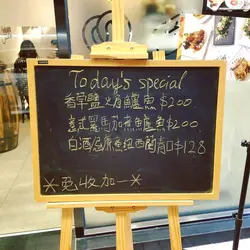 Today's special
香草鹽火焗鱸魚 $200
意式羅馬茄煮鱸魚 $200
白酒 煮 紐西蘭青口 $128
*免收加一*